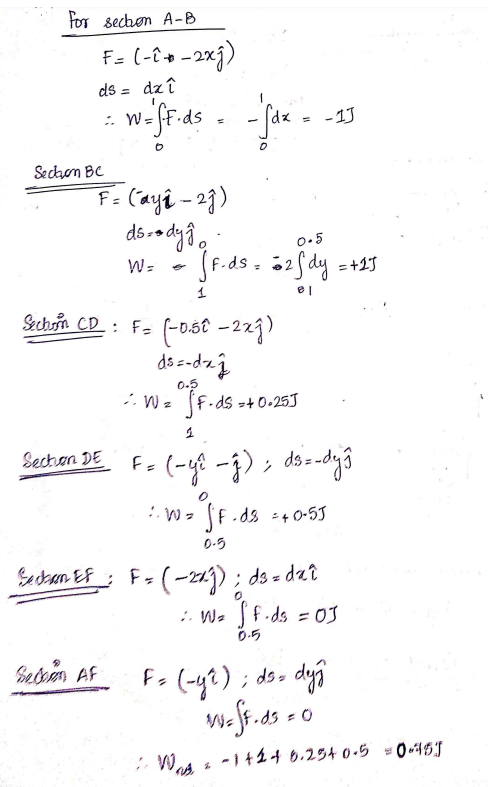 For section A-B
F = (-î - 2xĵ)
ds = dx î
∴ W = ∫₀¹ F.ds = - ∫₀¹ dx = -1J
Section BC
F = (-yî - 2ĵ)
ds = dyĵ
W = ∫₁ F.ds = -2 ∫₁^0.5 dy = +1J
Section CD : F = (-0.5î - 2xĵ)
ds = -dxĵ
∴ W = ∫₁^0.5 F.ds = +0.25J
Section DE F = (-yî - ĵ) ; ds = -dyĵ
∴ W = ∫_0.5^0 F.ds = +0.5J
Section EF : F = (-2xĵ) ; ds = dxî
∴ W = ∫_0.5^0 F.ds = 0J
Section AF F = (-yî) ; ds = dyĵ
W = ∫F.ds = 0
∴ W = -1+1+0.25+0.5 = 0.75J